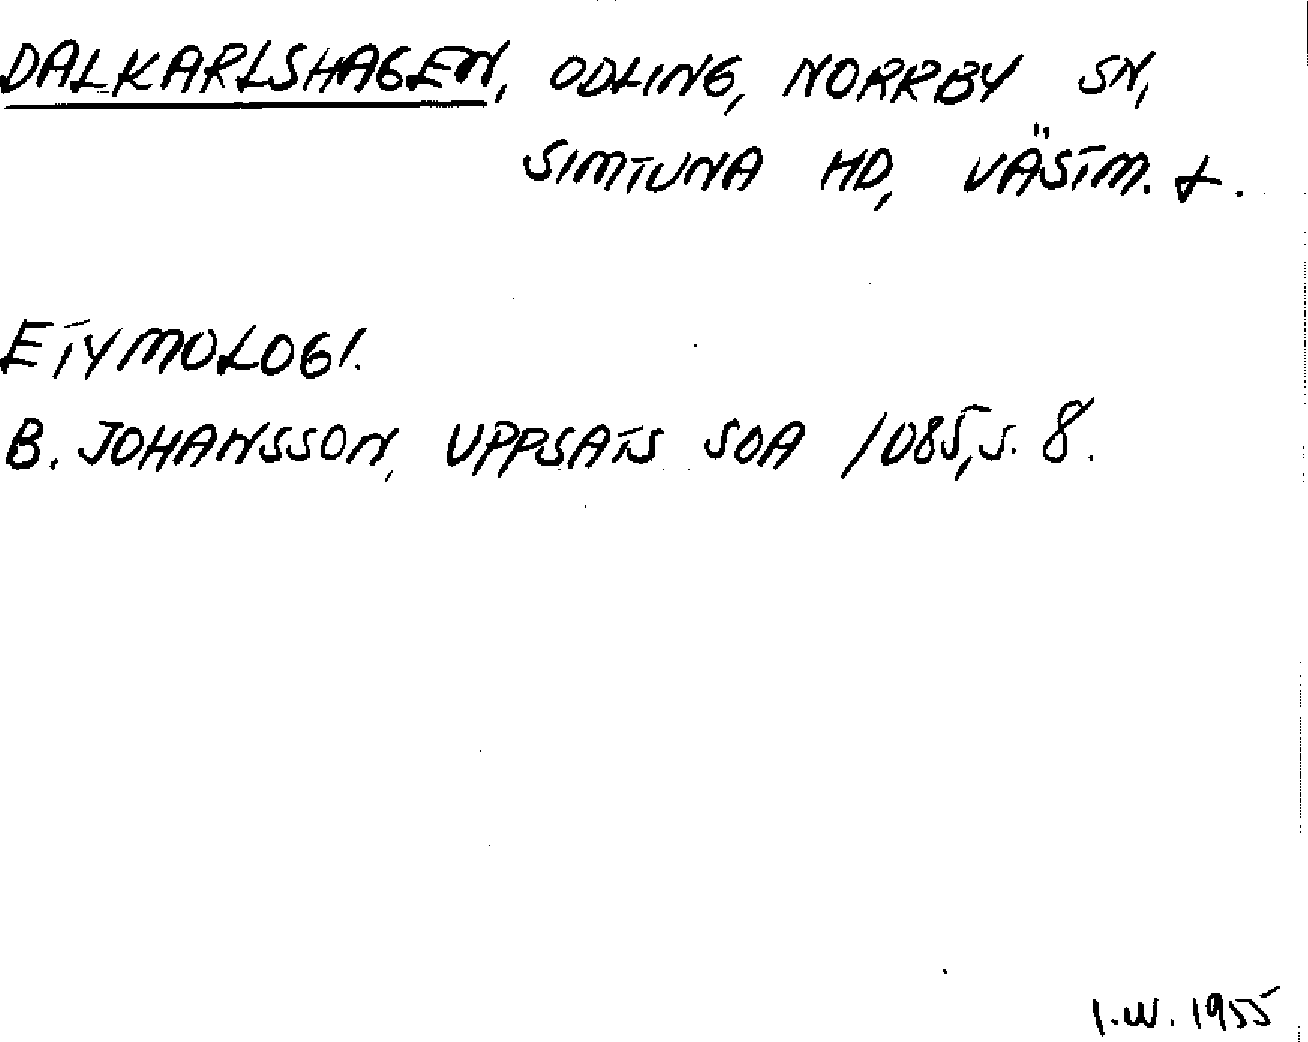 DALKARLSHAGEN, ODLING, NORRBY SN,
SIMTUNA HD, VÄSTM. L.
ETYMOLOGI.
B. JOHANSSON, UPPSATS SOA 1085, S. 8.
I.W. 1955